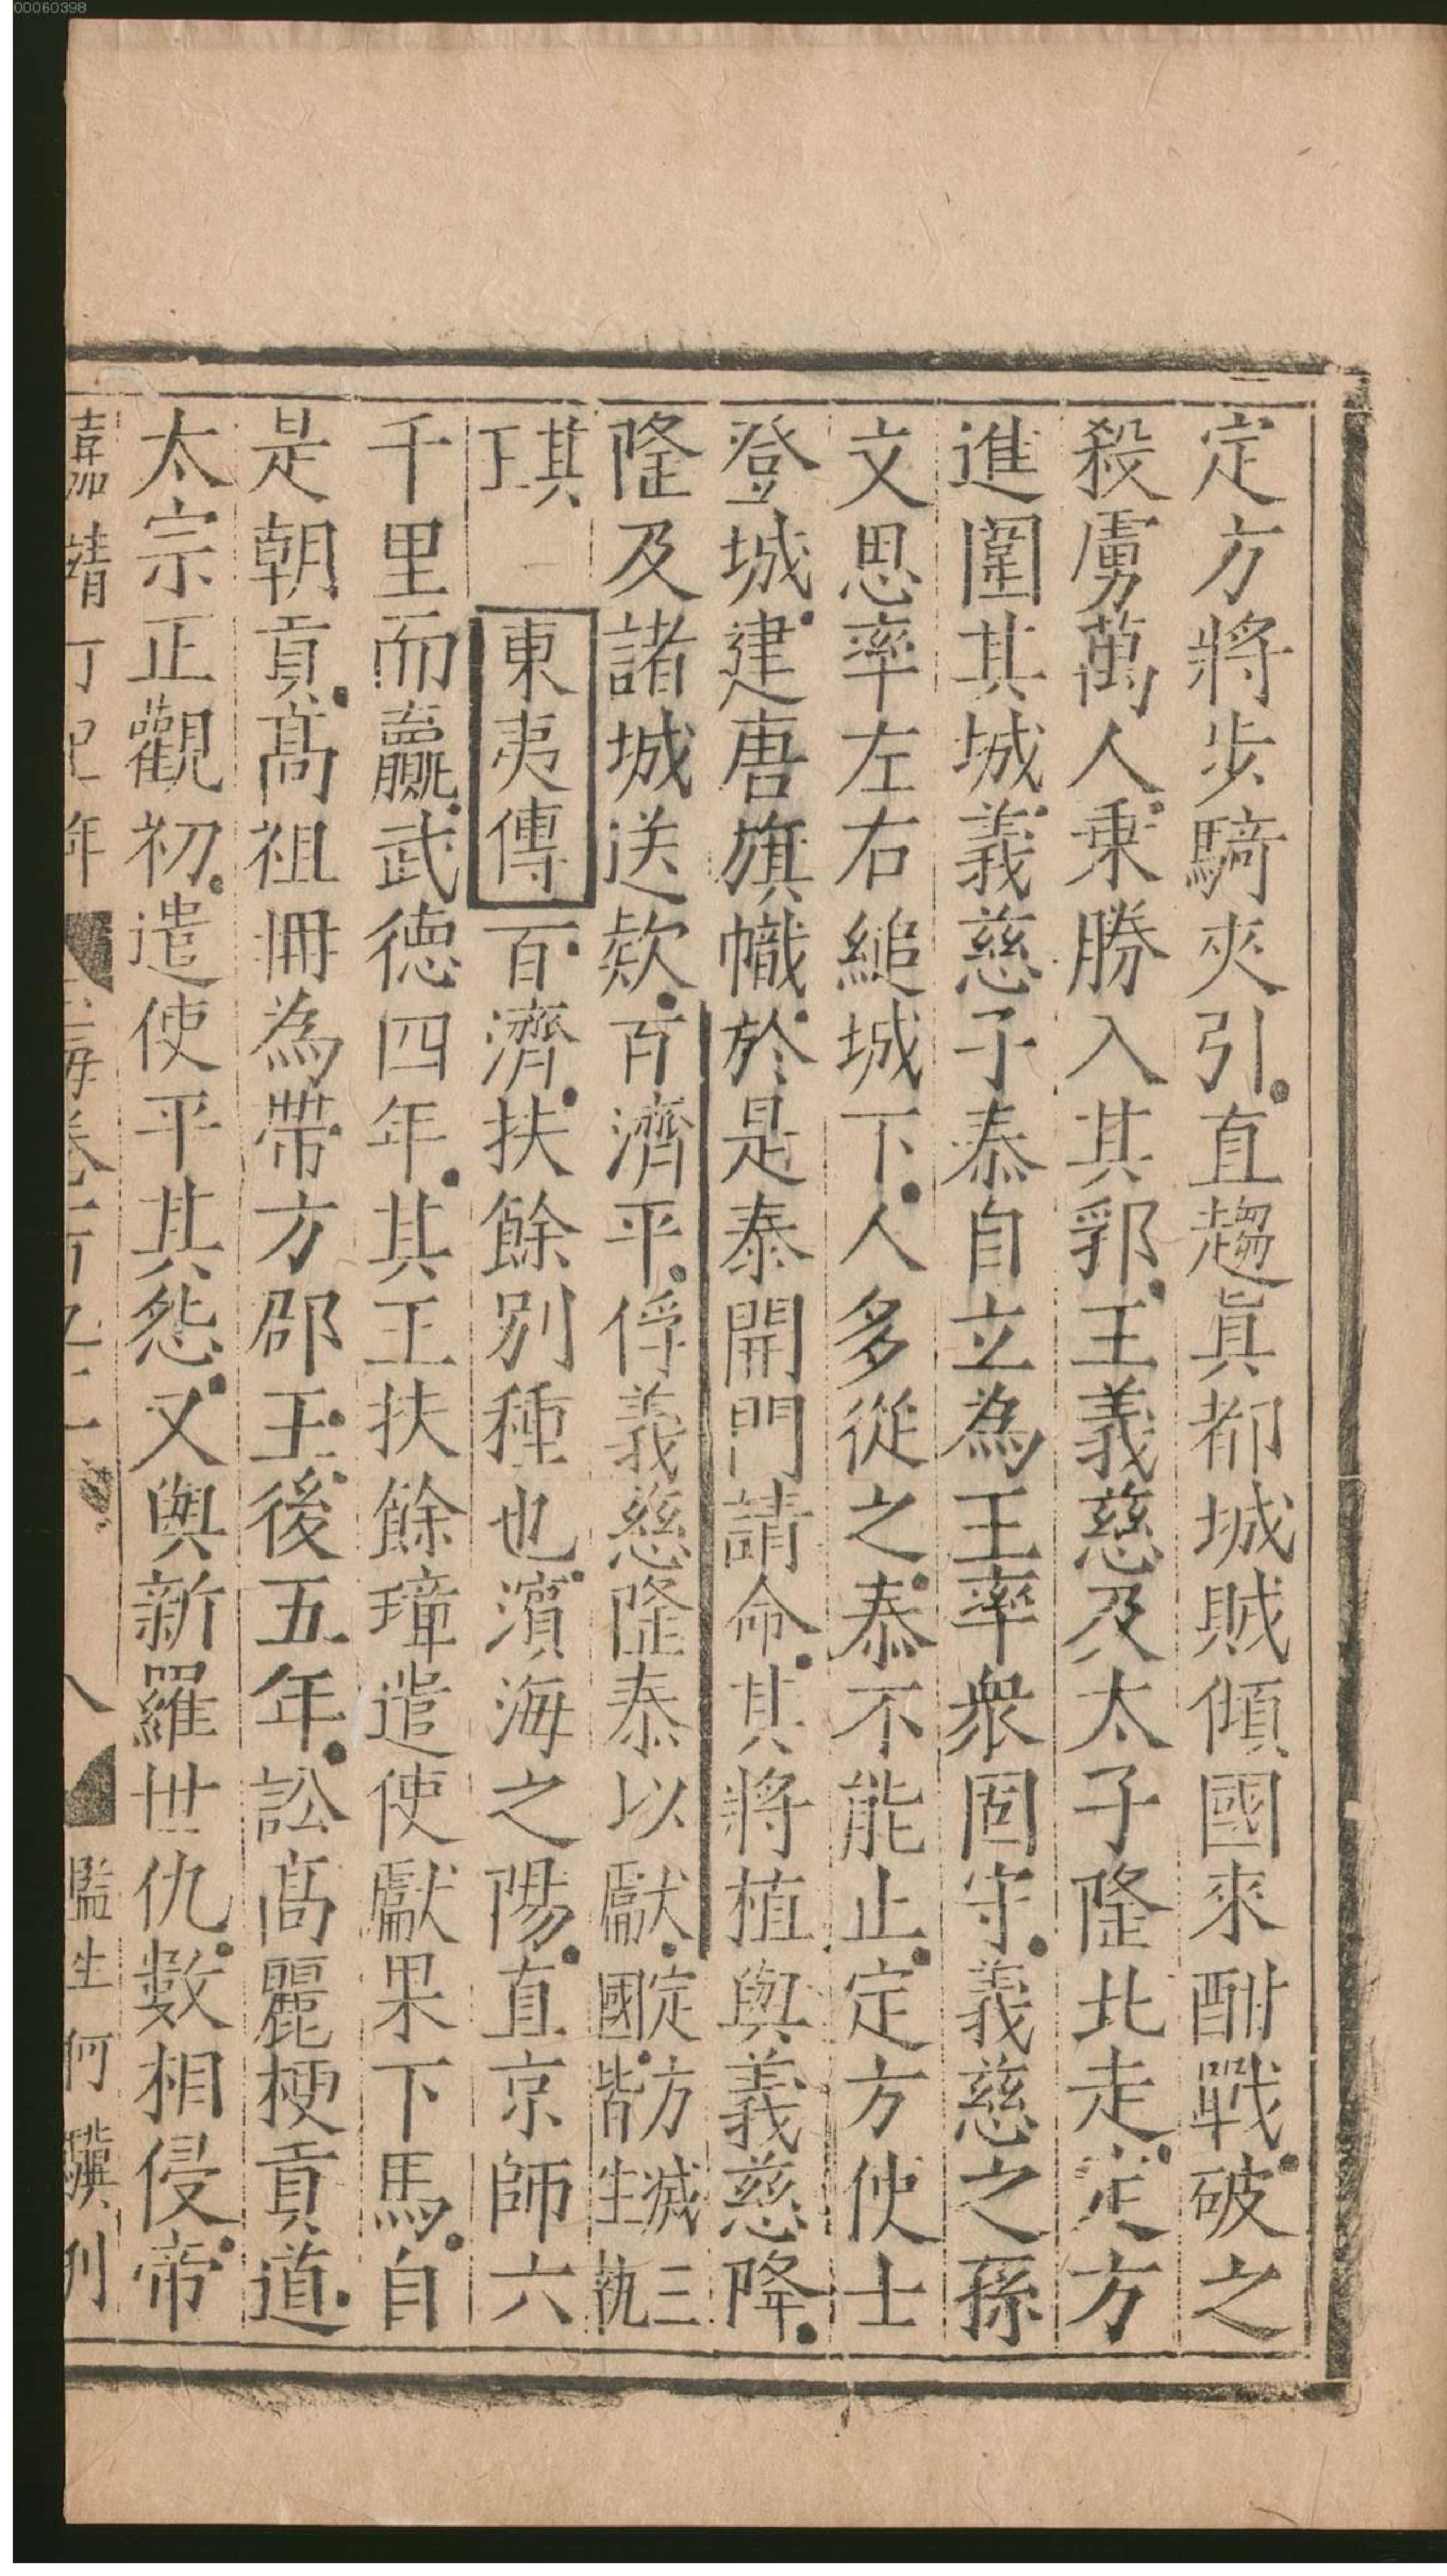 00060398
定方將步騎夾引直趨眞都城賊傾國來酣戰破之
殺虜萬人乗勝入其郛王義慈及太子隆北走定方
進圍其城義慈子泰自立為王率衆固守義慈之孫
文思率左右縋城下人多從之泰不能止定方使士
登城建唐旗幟於是泰開門請命其將植與義慈降
隆及諸城送欵百濟平俘義慈隆泰以獻定方滅三
國皆生執
其王
東夷傳百濟扶餘別種也濱海之陽直京師六
千里而贏武德四年其王扶餘璋遣使獻果下馬自
是朝貢髙祖冊為帶方郡王後五年訟髙麗梗貢道
太宗正觀初遣使平其怨又與新羅世仇數相侵帝
嘉靖丁巳年
玉海卷百五十二
八
監生何驥刊